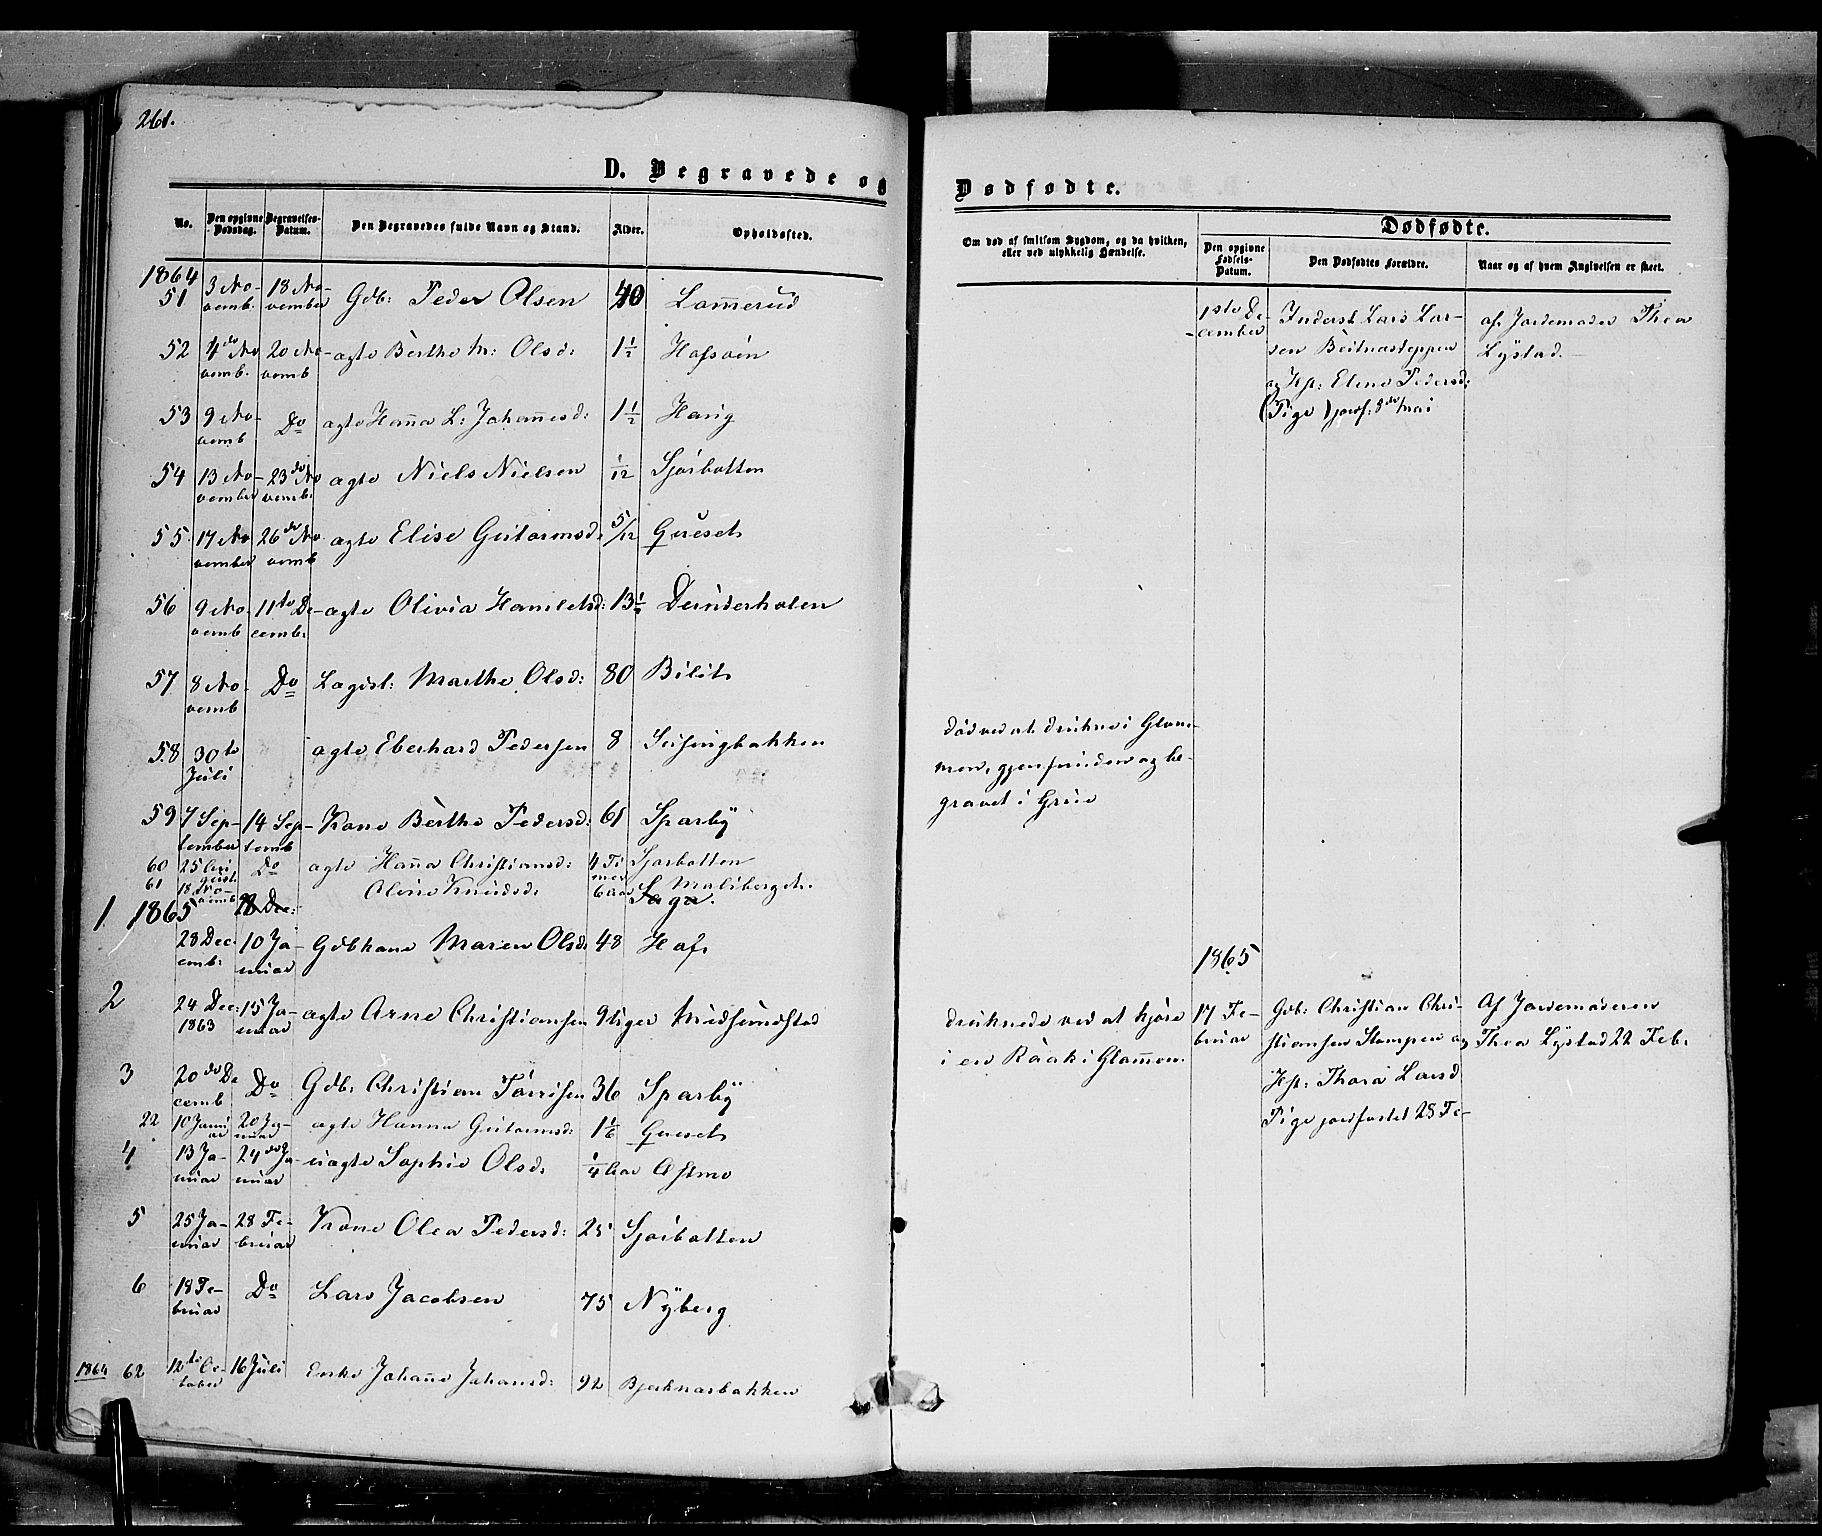 261.
D. Begravede og
No.
Den opgivne Dødsdag.
Begravelses-Datum.
Den Begravedes fulde Navn og Stand.
Alder.
Opholdssted.
1864
51 3 November 18 November Gdb: Peder Olsen 40 Lamerud
52 4de Novemb. 20 Novemb ægte Berthe M: Olsd: 1 1/2 Hafsøen
53 9 Novemb Do ægte Hanna L: Johannesd: 1 1/2 Haug
54 13 November 23de Novemb: ægte Niels Nielsen 1/12 Sjøsbotten
55 17 November 26de Novemb ægte Elise Guttormsd: 5/12 Grueset
56 9 Novemb 11te Decemb: ægte Olivia Hansletsd: 13 1/2 Dunderholen
57 8 Novemb Do Lægdsl: Marthe Olsd: 80 Bilit
58 30te Juli ægte Eberhard Pedersen 8 Susingbakken
59 7 September 14 Septemb Kone Berthe Pedersd: 61 Sparby
60 25 August Do ægte Hanna Christiansd: 4 Timer Sjøsbotten
61 18 Novemb 18 Dec: Oline Knudsd. 6 aar Maliberget.
Saga.
1 1865
28 Decemb: 10 Januar Gdbkone Maren Olsd: 48 Hof
2 24 Dec: 1863 15 Januar ægte Arne Christiansen 9 Uger Midsundstad
3 20de Decemb Do Gdb: Christian Tørrisen 36 Sparby
22 10 Januar 20 Januar ægte Hanna Guttormsd: 1 1/6 Grueset
4 13 Januar 24de Januar uægte Sophie Olsd: 1/4 Aar Astmo
5 25 Januar 28 Februar Kone Olea Pedersd: 25 Sjøsbotten
6 18 Februar Do Lars Jacobsen 75 Nyberg
1864 62 12te October 16 Juli Enke Johane Johansd: 92 Bjerknæsbakken
Dødfødte.
Om død af smitsom Sygdom, og da hvilken,
eller ved ulykkelig Hændelse.
Dødfødte.
Den opgivne Fødsels-Datum.
Den Dødfødtes Forældre.
Naar og af hvem Angivelsen er skeet.
1ste December
Inderst Lars Larsen
og Hst: Eline Pedersd:
(Pige) jordf: 8de Mai
af Jordemoder Thea
Lystad.
død ved at drukne i Glommen,
gjenfunden og begravet
i Grue
1865
druknede ved at kjøre
i en Raak i Glommen.
17 Februar
Gdb: Christian Christiansen
Stompen og
Hst: Thora Larsd
Pige jordfæstet 28 Fe-
Af Jordemoderen
Thea Lystad 22 Feb.